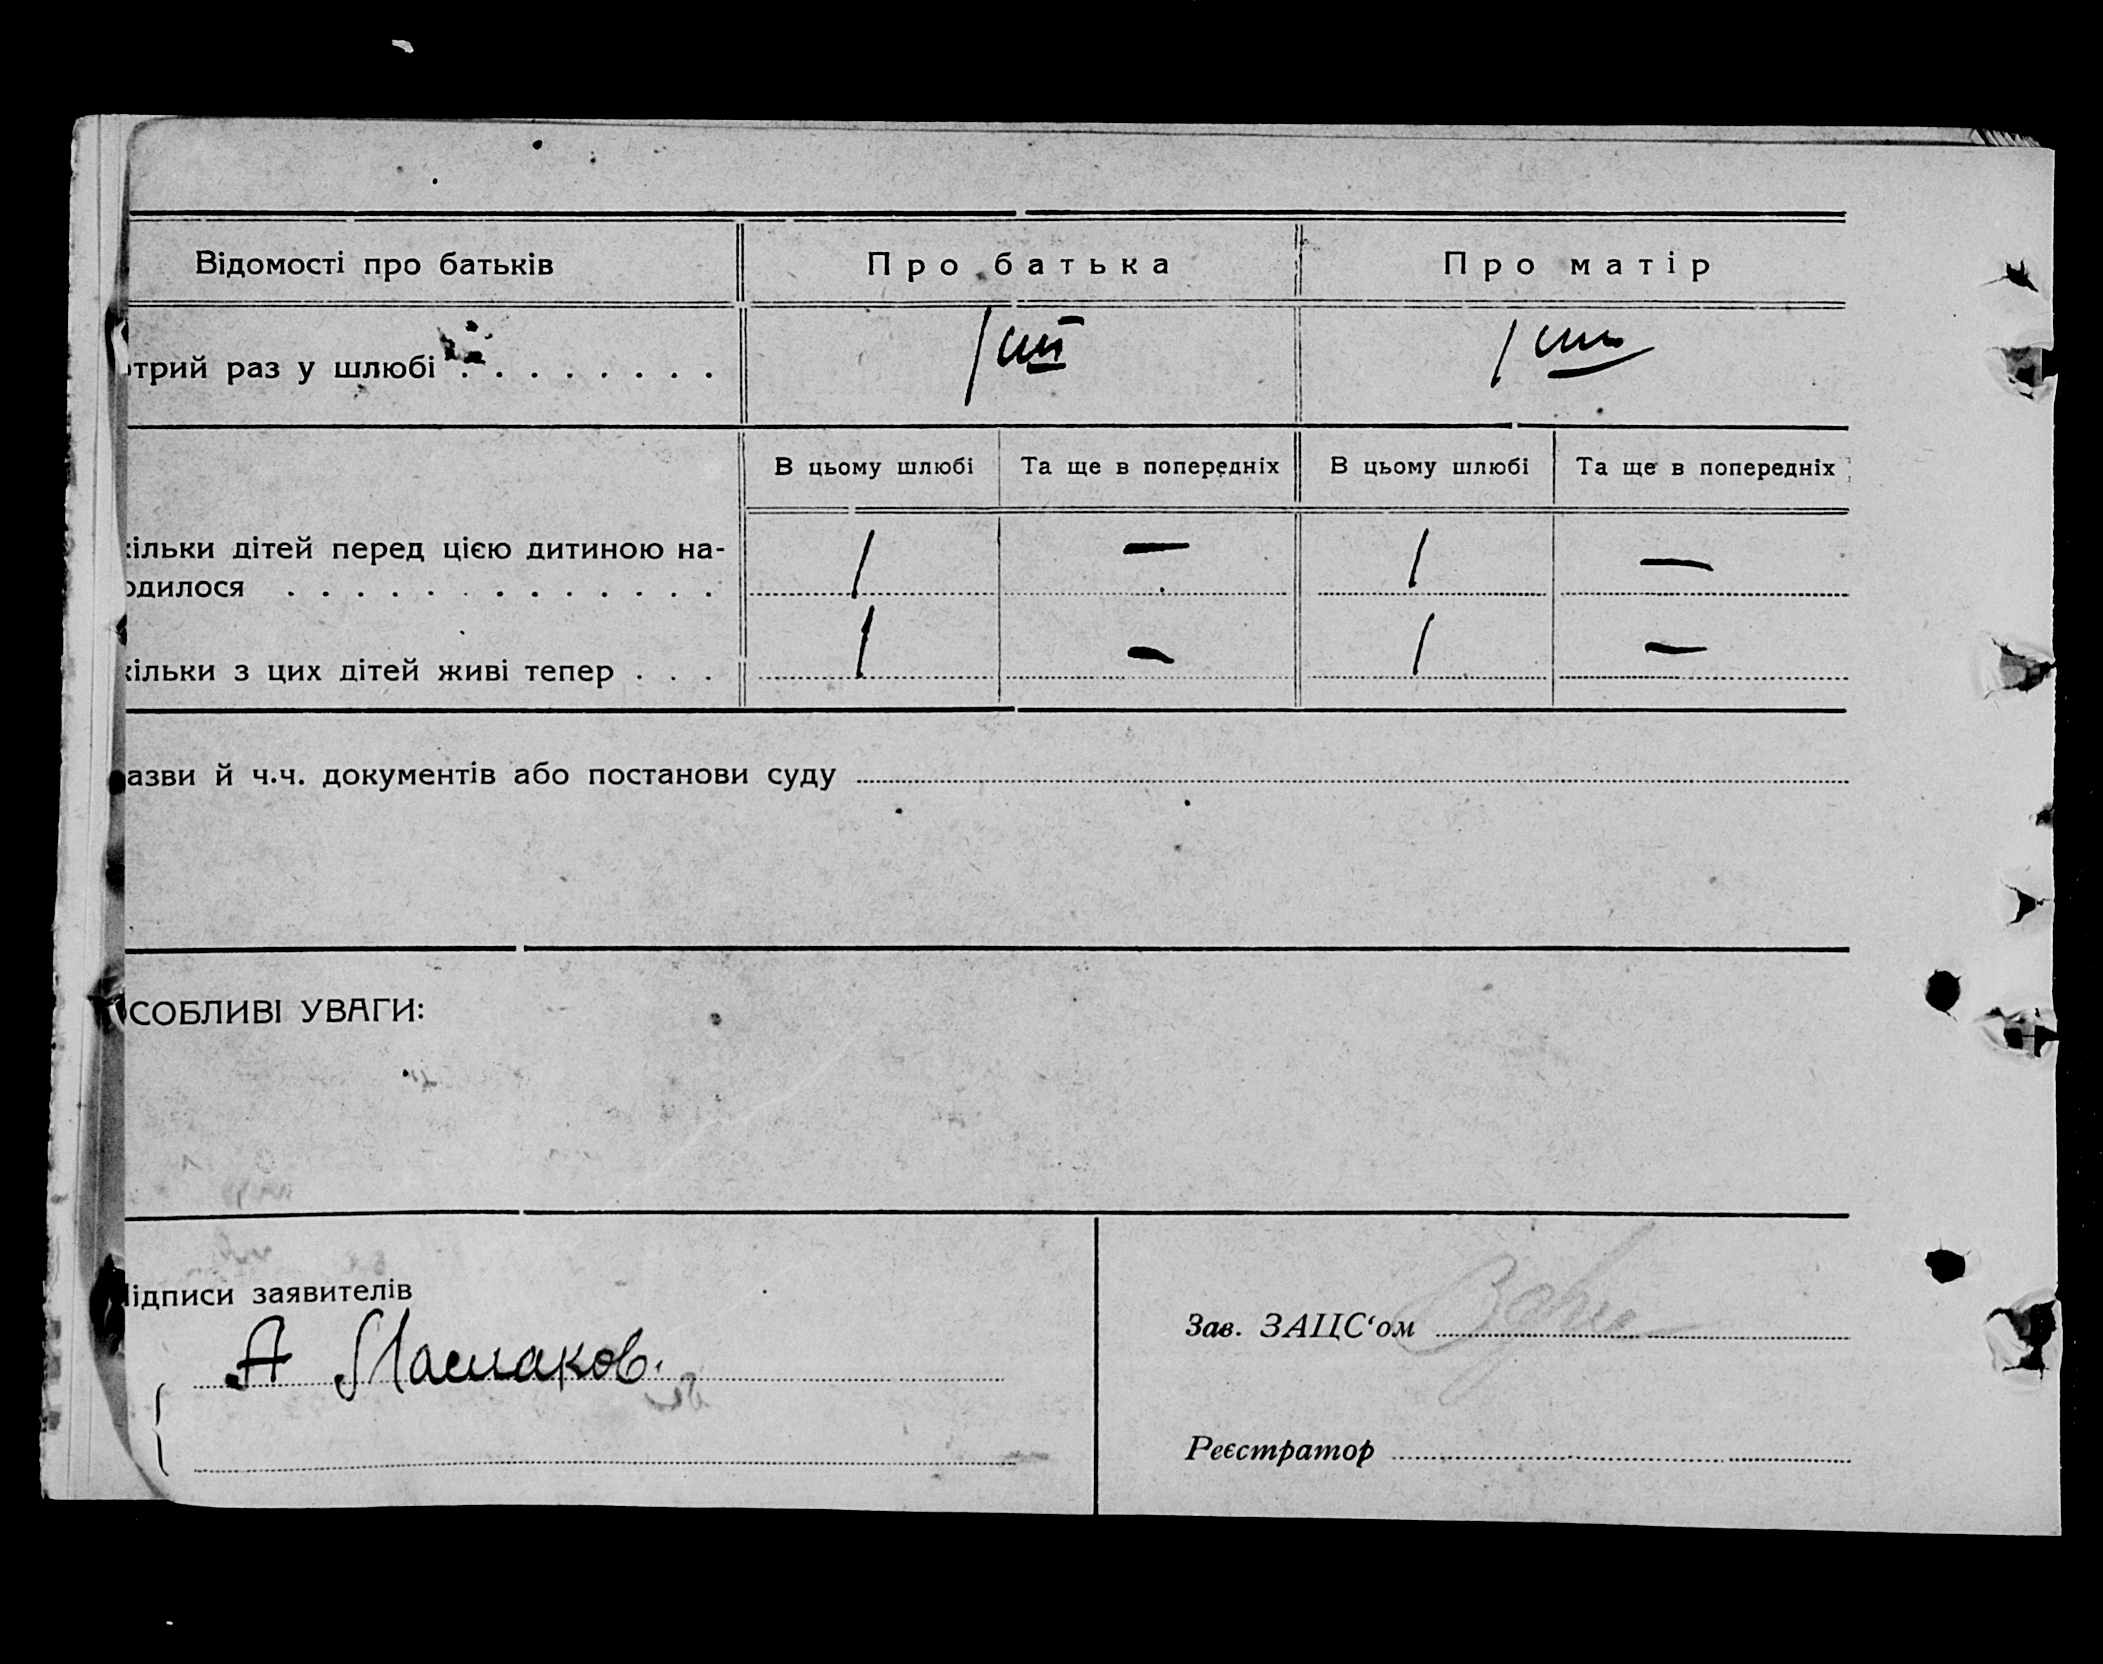 Відомості про батьків
Про батька
Про матір
отрий раз у шлюбі . . . . . . . .
В цьому шлюбі
Та ще в попередніх
В цьому шлюбі
Та ще в попередніх
кільки дітей перед цією дитиною на-
одилося . . . . . . . . . . . . .
1 — 1 —
кільки з цих дітей живі тепер . . .
1 — 1 —
азви й ч.ч. документів або постанови суду
СОБЛИВІ УВАГИ:
Підписи заявителів
А
Зав. ЗАЦС‘ом
Реєстратор